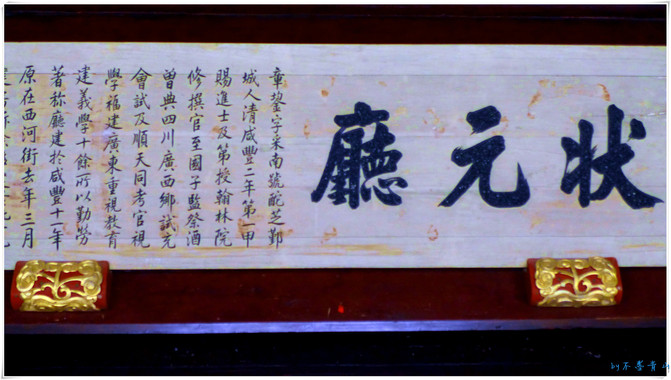 狀元廳
章鋆字采南號酡芝鄞
城人清咸豐二年第一甲
賜進士及第授翰林院
修撰官至國子監祭酒
曾典四川廣西鄉試充
會試及順天同考官視
學福建廣東重視教育
建義學十餘所以勤勞
著称廳建於咸豐十一年
原在西河街去年三月
by不啻青